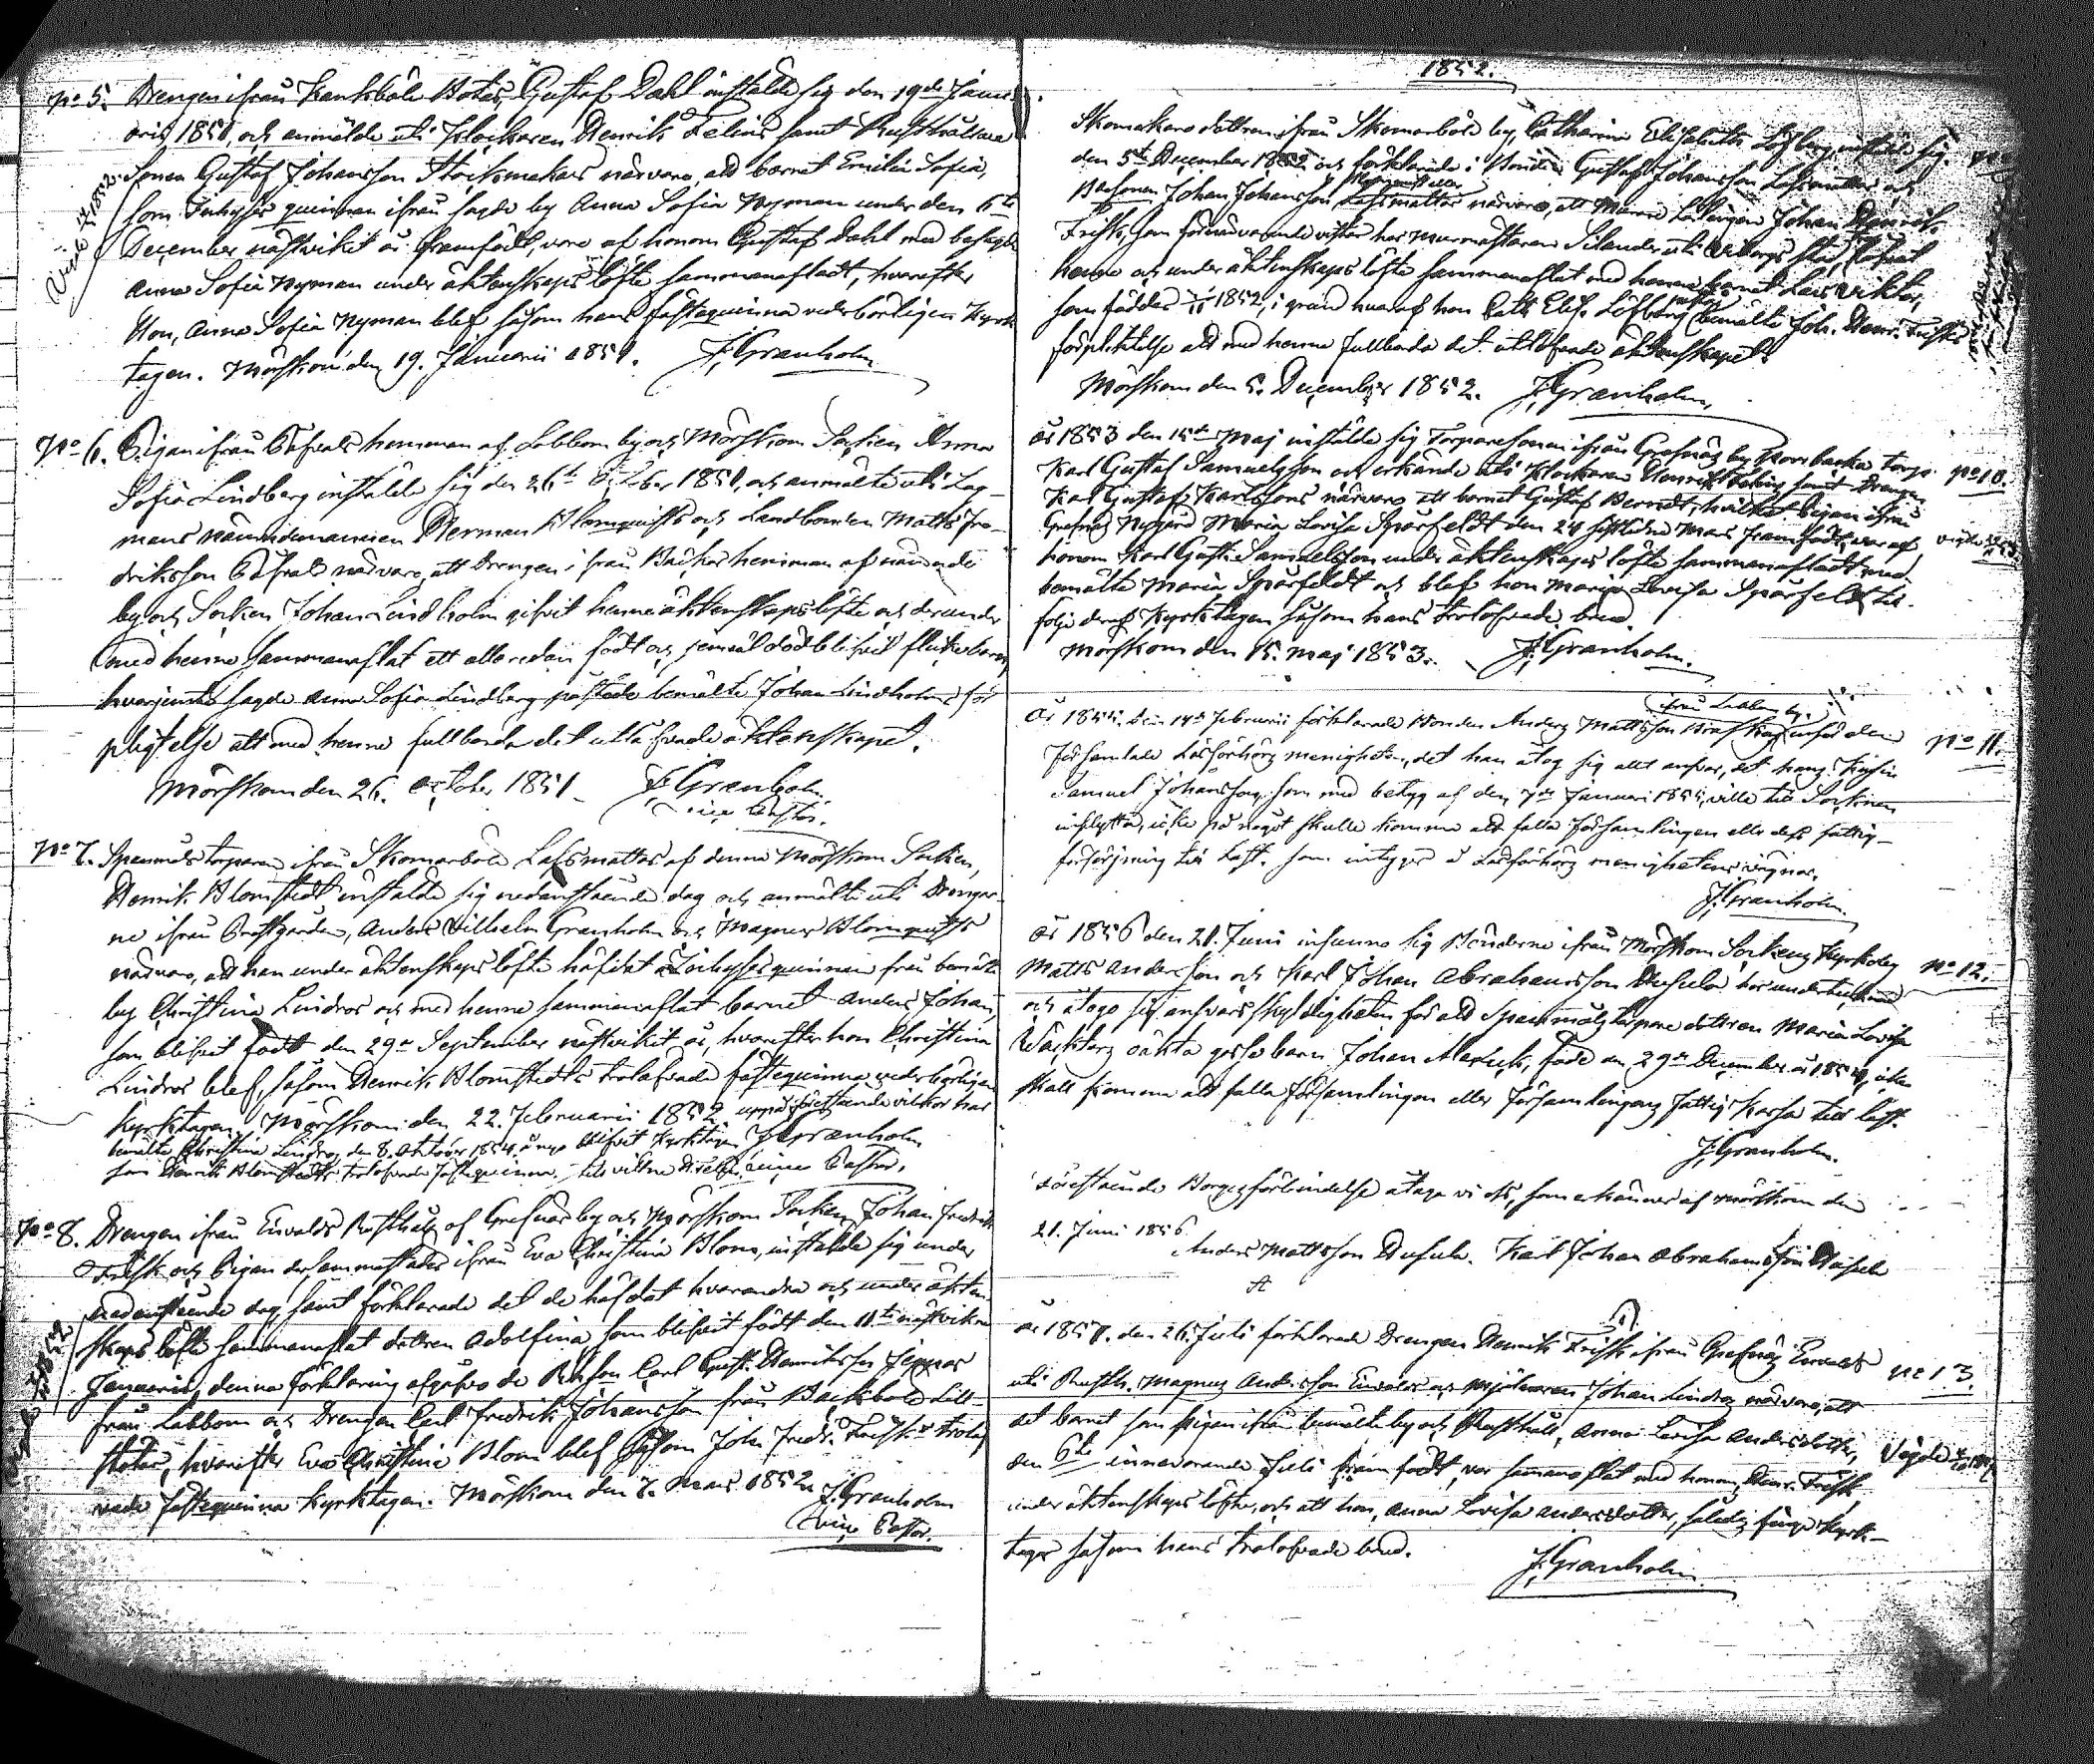 No 5. Drengen ifrån Kankböle Botas, Gustaf Dahl instälde sig den 19de Janu-
arii 1851, och anmälde uti Klockaren Henrik Zelins samt Rusthållare
Sonen Gustaf Johansson Stocksmakars närvaro, att barnet Emilia Sofia,
som Inhyses quinnan ifrån sagde by Anna Sofia Nyman under den 6te
December nästvikit år framfödt, vore af honom Gustaf Dahl med besagde
Anna Sofia Nyman under äktenskaps löfte sammanafladt, hvarefter
Hon, Anna Sofia Nyman blef såsom hans fästequinna vederbörligen Kyrk
tagen. Mörskom den 19. Januarii 1851. J. Granholm
No 6. Pigan ifrån Påfvals hemman af Labbom by och Mörskom Socken Anna
Sofia Lindberg instälde sig den 26te October 1851, och anmälte uti Lag-
mans nämndemannen Herman Blomqvists och Landbonden Matts Fre-
driksson Påfvals närvaro, att Drengen ifrån Backas hemman af nämnde
by och Socken Johan Lindholm gifvit henne äktenskapslöfte och derunder
med henne sammanaflat ett allaredan födt och jemväl dödt blifvit flickebarn,
hvarjemte sagde Anna Sofia Lindberg påstode bemälte Johan Lindholms för
pligtelse att med henne fullborda det utlofvade äktenskapet.
Mörskom den 26. October 1851. J. Granholm
vice Pastor.
No 7. Spanmåls torparen ifrån Skomarböle Lassmattas af denna Mörskom Socken,
Henrik Blomstedt instälde sig nedanstående dag och anmälte uti Drengar-
ne ifrån Prestgården, Anders Vilhelm Granholm och Magnus Blomqvists
närvaro, att han under äktenskaps löfte häfdat Inhysesquinnan från bemälte
by Christina Lindros och med henne sammanaflat barnet Anders Johan,
som blifvit födt den 29de September nästvikit år, hvarefter hon Christina
Lindros blef, såsom Henrik Blomstedts trolofvade fästequinna vederbörligen
kyrktagen. Mörskom den 22. Februarii 1852. uppå föreståen de vilkor har
bemälte Christina Lindros, den 8. October 1854, å nyo blifvit Kyrktagen J. Granholm
som Henrik Blomstedts trolofvade fästequinna. vice Pastor.
No 8. Drengen ifrån Eivalds Rusthåll af Grefnäs by och Mörskom Socken, Johan Fredrik
Frisk och Pigan dersammastädes ifrån Eva Christina Blom, instälde sig under
nedanstående dag, samt förklarade det de häfdat hvarandra och under äkten-
skaps löfte sammanaflat dottren Adolfina, som blifvit född den 11te nästvikne
Januarii, denna förklaring afgåfvo de Bdeson Carl Gust. Henriksson Jeppas
från Labbom och Drengen Carl Fredrik Johansson från Backböle Lill-
, hvarefter Eva Christina Blom blef såsom Joh. Fredr. Frisks trolof
vade fästequinna kyrktagen. Mörskom den 7. Mars 1852. J. Granholm
vice Pastor.
1852.
Skomakare dottren ifrån Skomarböle by, Catharina Elisabeth Löfberg, instälde sig
den 5te December 1852 och förklarade i Bonden Gustaf Johansson Lassmattas och
Bdesonen Johan Johansson Lassmattas närvaro, att Murare Lärlingen Johan Henrik
Frisk, som förnärvarande vistas hos Murmästaren Silander uti Wiborgs stad, häfdat
henne och under äktenskaps löfte sammanaflat med henne barnet Lars Viktor,
som föddes 1852, i grund hvaraf hon Cath. Elis. Löfberg bemälte Joh. Henr. Frisks
förpliktelse att med henne fullborda det utlofvade äktenskapet.
Mörskom den 5. December 1852. J. Granholm.
År 1853 den 15de Maj instälde sig Torparesonen ifrån Grefnäs by Korrbacka torp No 10.
Karl Gustaf Samuelsson och erkände uti Klockaren Henrik Zelins samt Drengen
Karl Gustaf Karlssons närvaro att barnet Gustaf Berndt, hvilket Pigan ifrån
Grefnäs Nygård Maria Lovisa Sparfeldt den 24 sistlidne Mars framfödt, var af
honom Karl Gust. Samuelsson under äktenskaps löfte sammanafladt med
bemälte Maria Sparfeldt och blef hon Maria Lovisa Sparfeldt till
följe deraf Kyrktagen såsom hans trolofvade brud.
Mörskom den 15. Maj 1853. J. Granholm.
ifrån Labbom by
År 1855. den 14de Februarii förklarade Bonden Anders Mattsson inför den No 11.
församlade Läsförhörs menigheten, det han åtog sig allt ansvar, att hans Kusin
Samuel Johansson, som med betyg af den 7de Januari 1855, ville till Socknen
inflytta, icke på något skulle komma att falla församlingen eller dess fattig-
försörjning till last. som intygar å Läsförhörs menighetens vägnar,
J. Granholm.
År 1856 den 21. Juni infunno sig Bönderne ifrån Mörskom Sockens Kyrkoby No 12.
Matts Andersson och Karl Johan Abrahamsson Husula
och åtogo sig ansvarsskyldigheten för att Spanmåls torpare dottren Maria Lovisa
Wäckters oäkta gossebarn Johan , född den 29de December år 1854, icke
skall komma att falla församlingen eller församlingens fattig kassa till last.
J. Granholm.
Förestående Borgesförbindelse ataga vi oss, som erkännes af Mörskom den
21. Juni 1856.
Anders Mattsson Husula. Karl Johan Abrahamsson Husula
År 1857. den 26. Juli förklarade Drengen Henrik Frisk ifrån Grefnäs Eivalds No 13.
uti Rusth. Magnus Andersson Eivalds och mjölnaren Johan Lindros närvaro, att
det barnet som pigan ifrån bemälte by och Rusthåll, Anna Lovisa Andersdotter,
den 6te innevarande Juli framfödt, var sammanaflat med honom, Henr. Frisk
under äktenskaps löfte, och att hon, Anna Lovisa Andersdotter, således finge Kyrk-
tagas såsom hans trolofvade brud.
J. Granholm